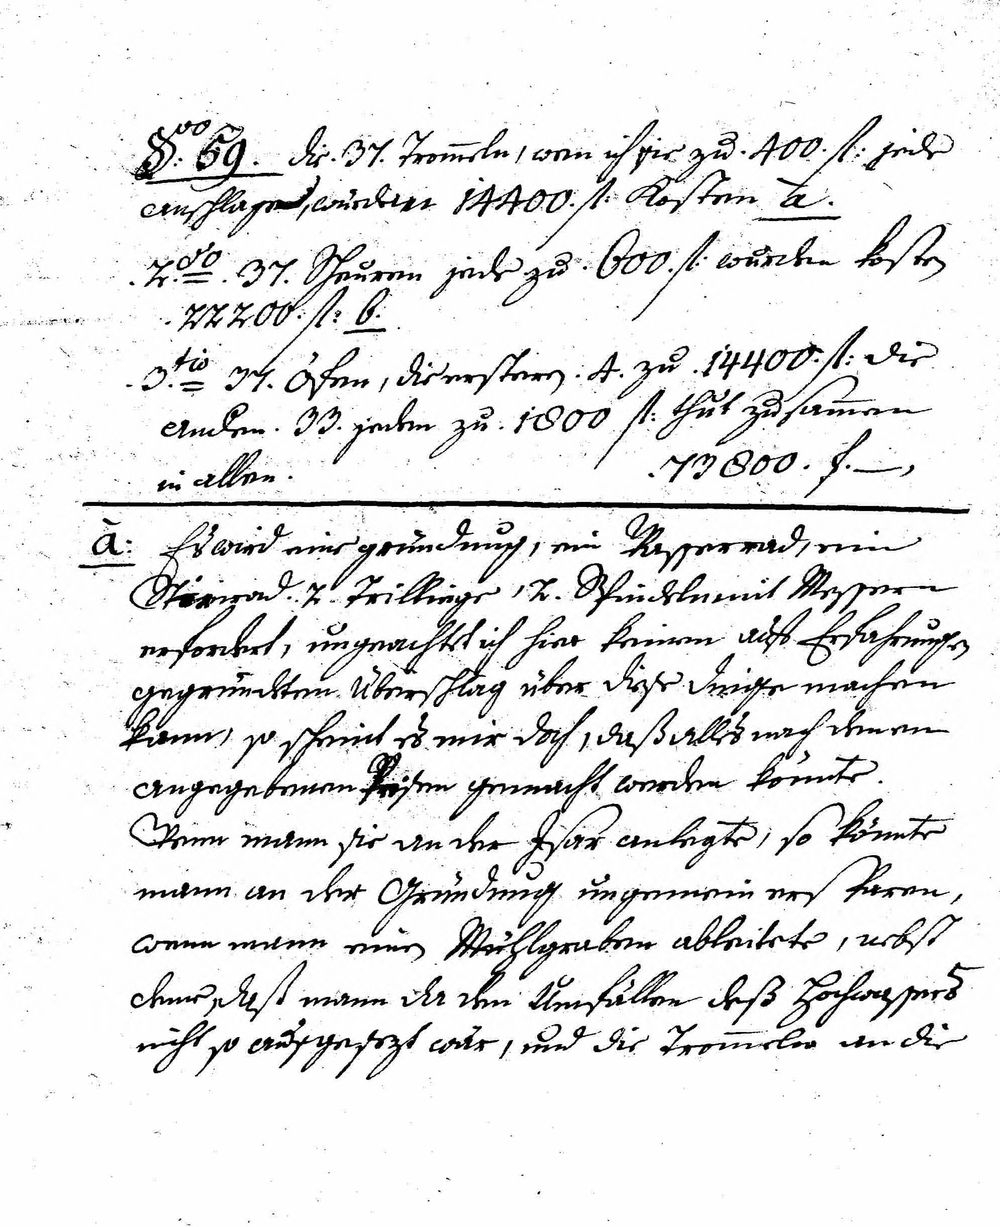 §: 59. die. 37. Trom̅eln, wen ich sie zu. 400. f: jede
anschlage, würden 14400. f: Kosten a.
2.do 37. Scheuren jede zu. 600. f: würden kosten
22200. f: b.
3.tio 37. Öfen, die ersteren. 4. zu. 14400. f: die
andern. 33. jeden zu. 1800 f: thut zusam̅en
in allen. 73800. f. —,
a: Es wird eine gründung, ein Wasserrad, ein
Stirnrad. 2. Trillinge, 2. Spindeln mit Messern
erfordert, ungeachtet ich hier keinen auf Erfahrungen
gegründeten Überschlag über diese dinge machen
kann, so scheint es mir doch, daß alles nach denen
angegebenen Preisen gemacht werden könnte.
Wenn mann sie an der Isar anlegte, so könnte
mann an der Gründung ungemein ersparen,
wenn mann einen Mühlgraben ableitete, nebst
deme, daß mann da den Umfällen deß Hochwassers
nicht so ausgesezt wär, und die Trom̅eln an die